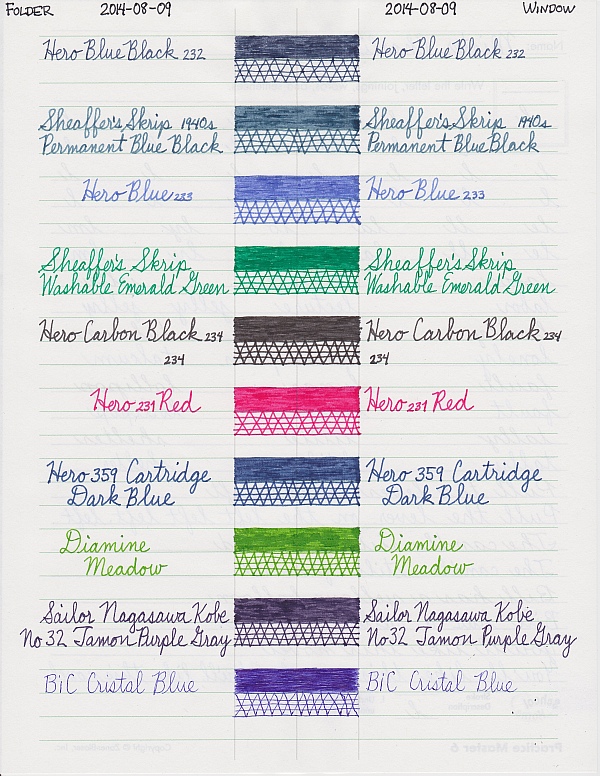 FOLDER 2014-08-09 2014-08-09 WINDOW
Hero Blue Black 232 Hero Blue Black 232
Sheaffer's Skrip 1940s Sheaffer's Skrip 1940s
Permanent Blue Black Permanent Blue Black
Hero Blue 233 Hero Blue 233
Sheaffer's Skrip Sheaffer's Skrip
Washable Emerald Green Washable Emerald Green
Hero Carbon Black 234 Hero Carbon Black 234
234 234
Hero 231 Red Hero 231 Red
Hero 359 Cartridge Hero 359 Cartridge
Dark Blue Dark Blue
Diamine Diamine
Meadow Meadow
Sailor Nagasawa Kobe Sailor Nagasawa Kobe
No 32 Tamon Purple Gray No 32 Tamon Purple Gray
BiC Cristal Blue BiC Cristal Blue
Practice Master 6